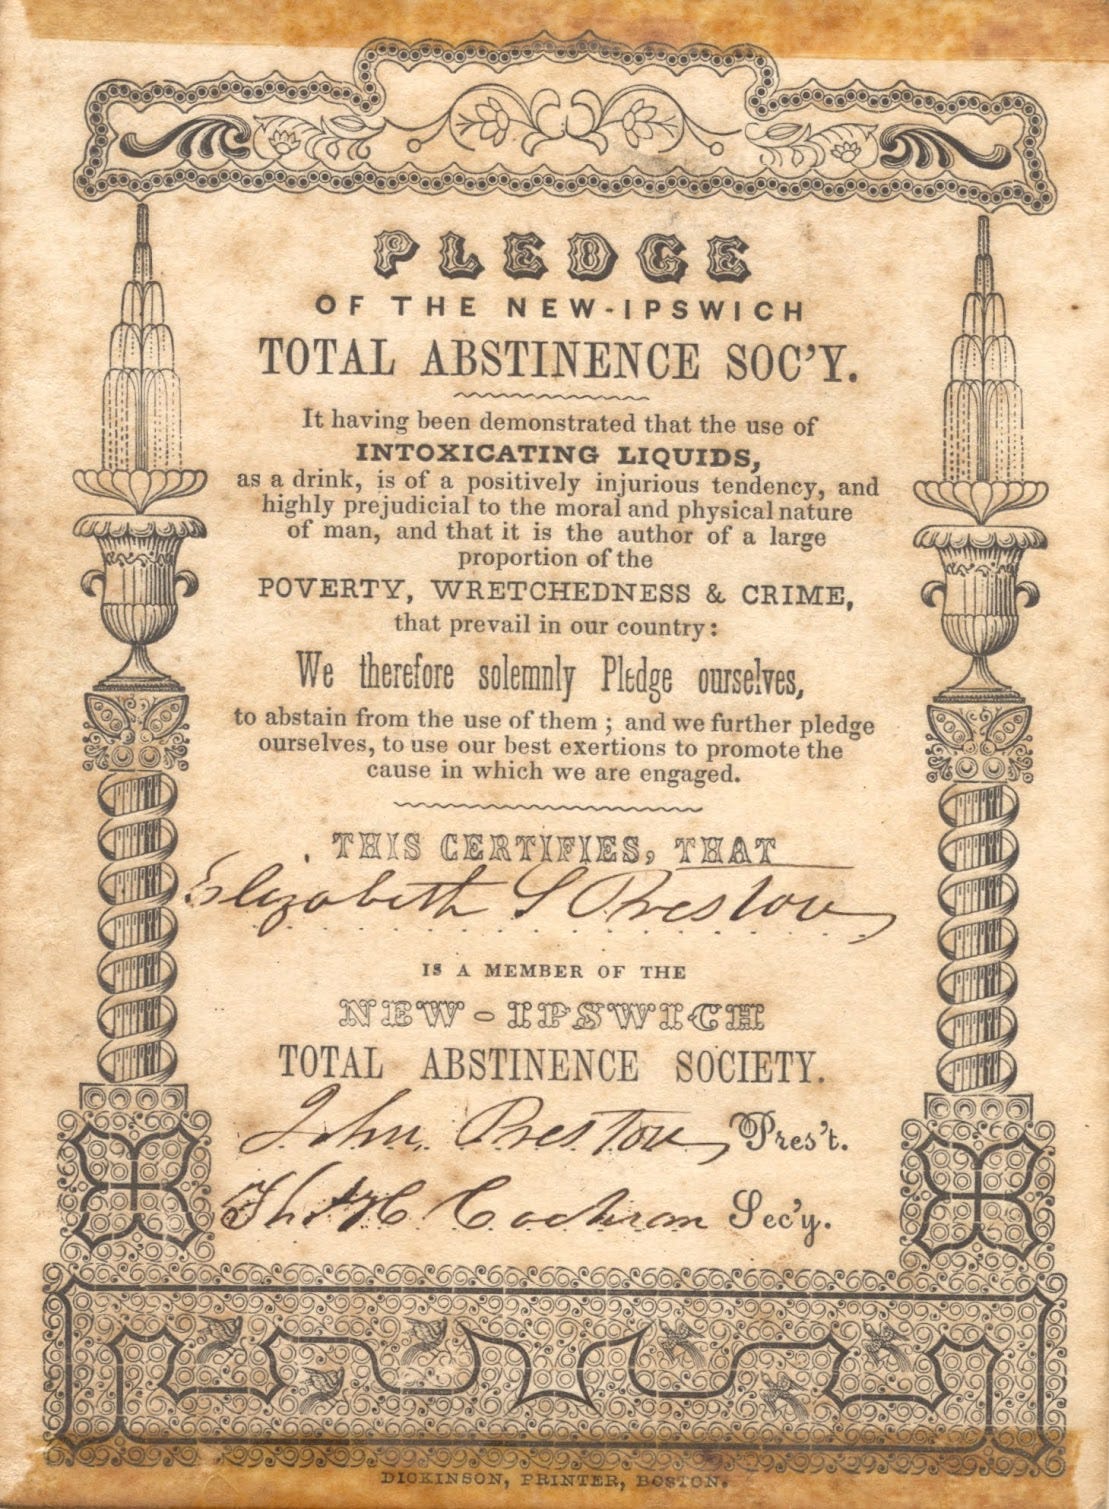 PLEDGE
OF THE NEW-IPSWICH
TOTAL ABSTINENCE SOC'Y.
It having been demonstrated that the use of
INTOXICATING LIQUIDS,
as a drink, is of a positively injurious tendency, and
highly prejudicial to the moral and physical nature
of man, and that it is the author of a large
proportion of the
POVERTY, WRETCHEDNESS & CRIME,
that prevail in our country:
We therefore solemnly Pledge ourselves,
to abstain from the use of them; and we further pledge
ourselves, to use our best exertions to promote the
cause in which we are engaged.
THIS CERTIFIES, THAT
Elizabeth S Preston
IS A MEMBER OF THE
NEW-IPSWICH
TOTAL ABSTINENCE SOCIETY.
John Preston Pres't.
H Cochran Sec'y.
DICKINSON, PRINTER, BOSTON.